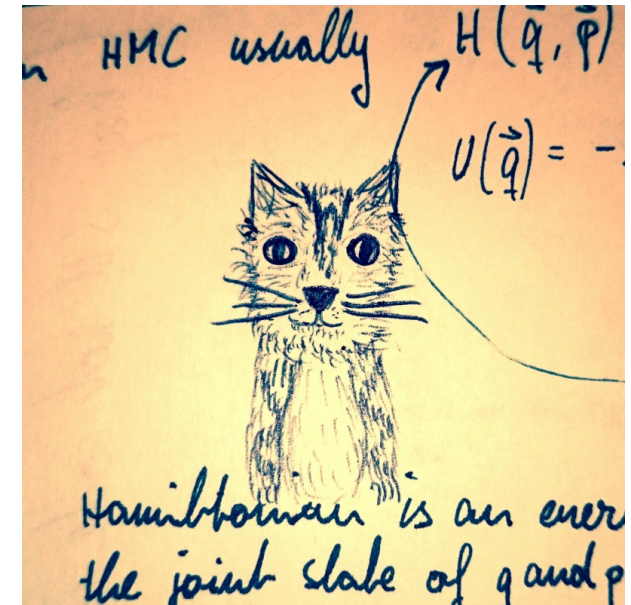 HMC usually H(q⃗, p⃗)
U(q⃗) = -
Hamiltonian is an ener
the joint state of q and p